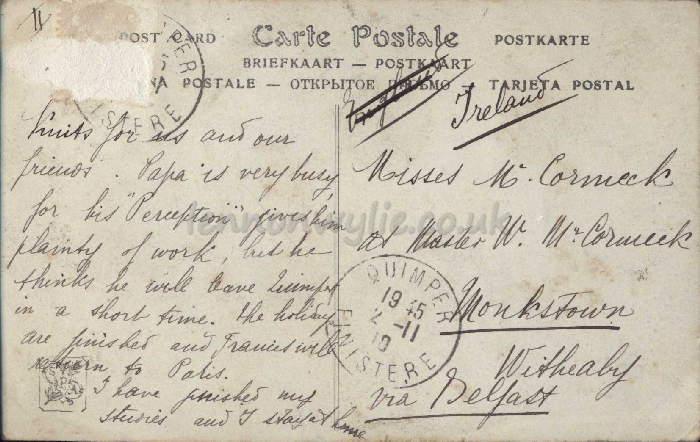 11
POST CARD Carte Postale POSTKARTE
BRIEFKAART — POSTKAART
NA POSTALE — ОТКРЫТОЕ ПИСЬМО — TARJETA POSTAL
England
Ireland
Knits for us and our
friends. Papa is very busy,
for his "Perception" gives him
plainty of work, but he
thinks he will leave Quimper
in a short time. The holidays
are finished and Frances will
return to Paris.
I have finished my
studies and I stay at home
Misses Mc. Cormeck
at Master W. Mc Cormeck
Monkstown
Witheaby
via Belfast
QUIMPER
19 45
2 -11
10
FINISTERE
PER
ISTERE
lennonwylie.co.uk